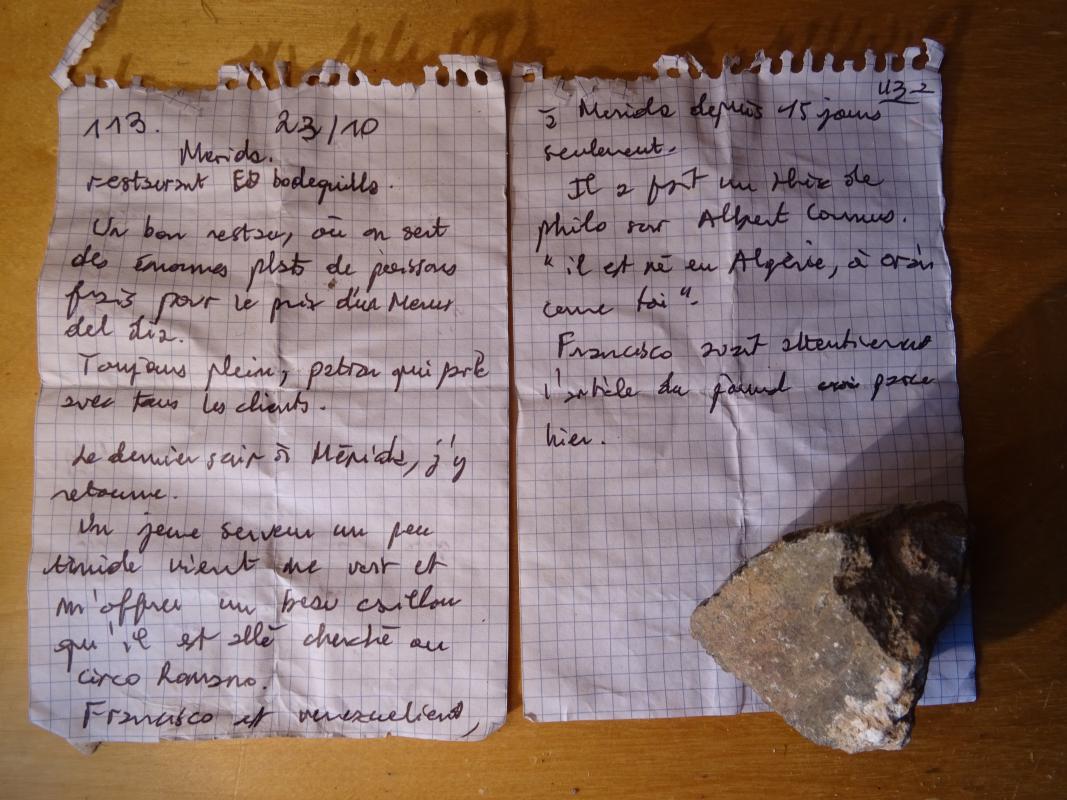 113. 23/10
Merida.
restaurant El bodeguilla.
Un bon restau, où on sert
des énormes plats de poissons
frais pour le prix d'un Menu
del dia.
Toujours plein, patron qui parle
avec tous les clients.
Le dernier soir à Mérida, j'y
retourne.
Un jeune serveur un peu
timide vient me voir et
m'offrer un beau caillou
qu'il est allé cherché au
circo Romano.
Francisco est venezuelien,
113-2
à Merida depuis 15 jours
seulement.
Il a fait un thèse de
philo sur Albert Camus.
"il est né en Algérie, à oran
comme toi".
Francisco avait
l'article du journal parce
hier.